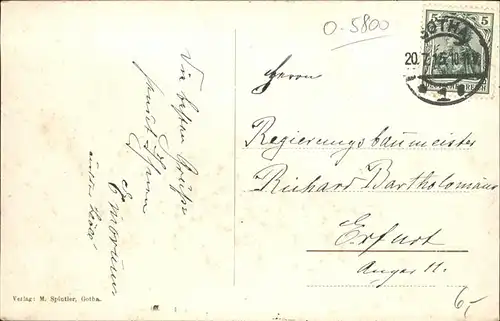 O-5800
GOTHA
20.7.15.10-11V.
* 1 *
5 5
Herrn
Regierungsbaumeister
Richard Bartholomäus
Erfurt
Anger 11.
Die besten Grüße
sendet Ihnen
Verlag: M. Spintler, Gotha.
6,-